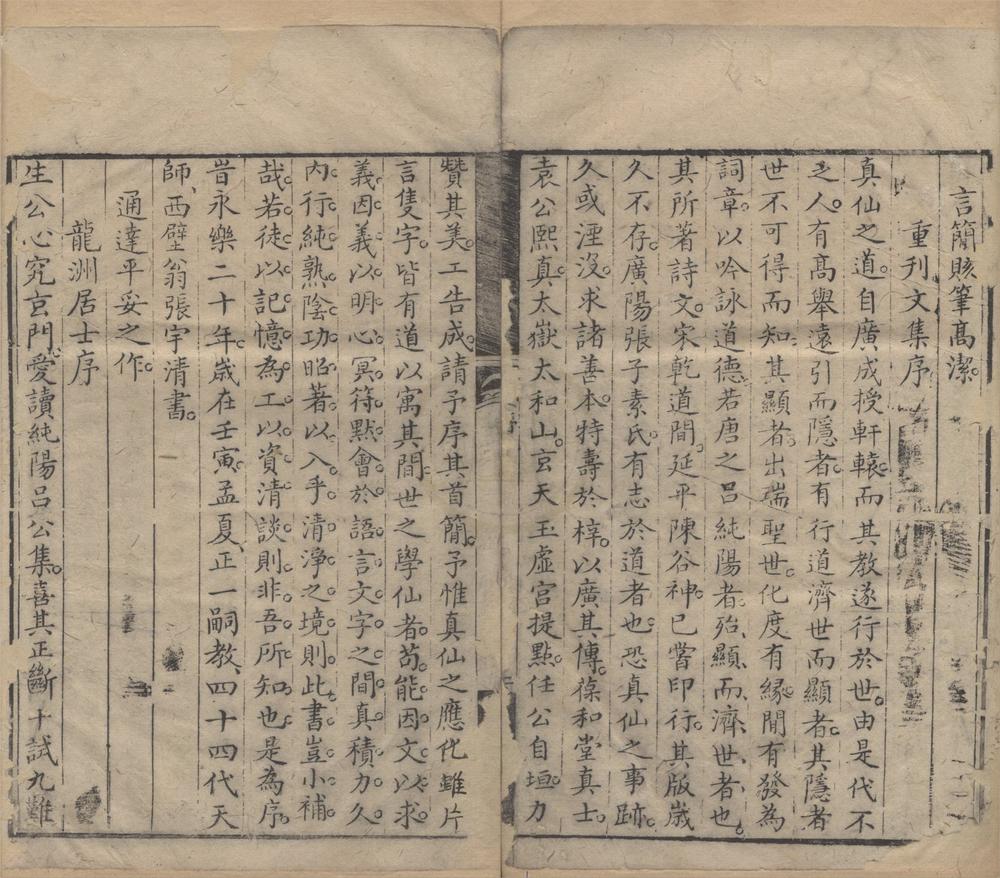 言簡賅筆高潔。
重刊文集序
真仙之道。自廣成授軒轅。而其教遂行於世。由是代不
乏人。有高舉遠引而隱者。有行道濟世而顯者。其隱者
世不可得而知。其顯者出瑞聖世。化度有緣。閒有發為
詞章。以吟詠道德。若唐之呂純陽者。殆顯而濟世者也。
其所著詩文。宋乾道間。延平陳谷神。已嘗印行。其版歲
久不存。廣陽張子素氏。有志於道者也。恐真仙之事跡。
久或湮沒。求諸善本。特壽於梓。以廣其傳。葆和堂真士。
袁公熙真。太嶽太和山。玄天玉虛宮提點。任公自垣。力
贊其美。工告成。請予序其首簡。予惟真仙之應化。雖片
言隻字。皆有道以寓其間。世之學仙者。苟能因文以求
義。因義以明心。冥符默會於語言文字之間。真積力久。
內行純熟。陰功昭著。以入乎清淨之境。則此書豈小補
哉。若徒以記憶為工。以資清談。則非吾所知也。是為序。
旹永樂二十年。歲在壬寅。孟夏、正一嗣教、四十四代天
師、西壁翁張宇清書。
通達平妥之作。
龍洲居士序
生公心究玄門。愛讀純陽呂公集。喜其正斷十試九難